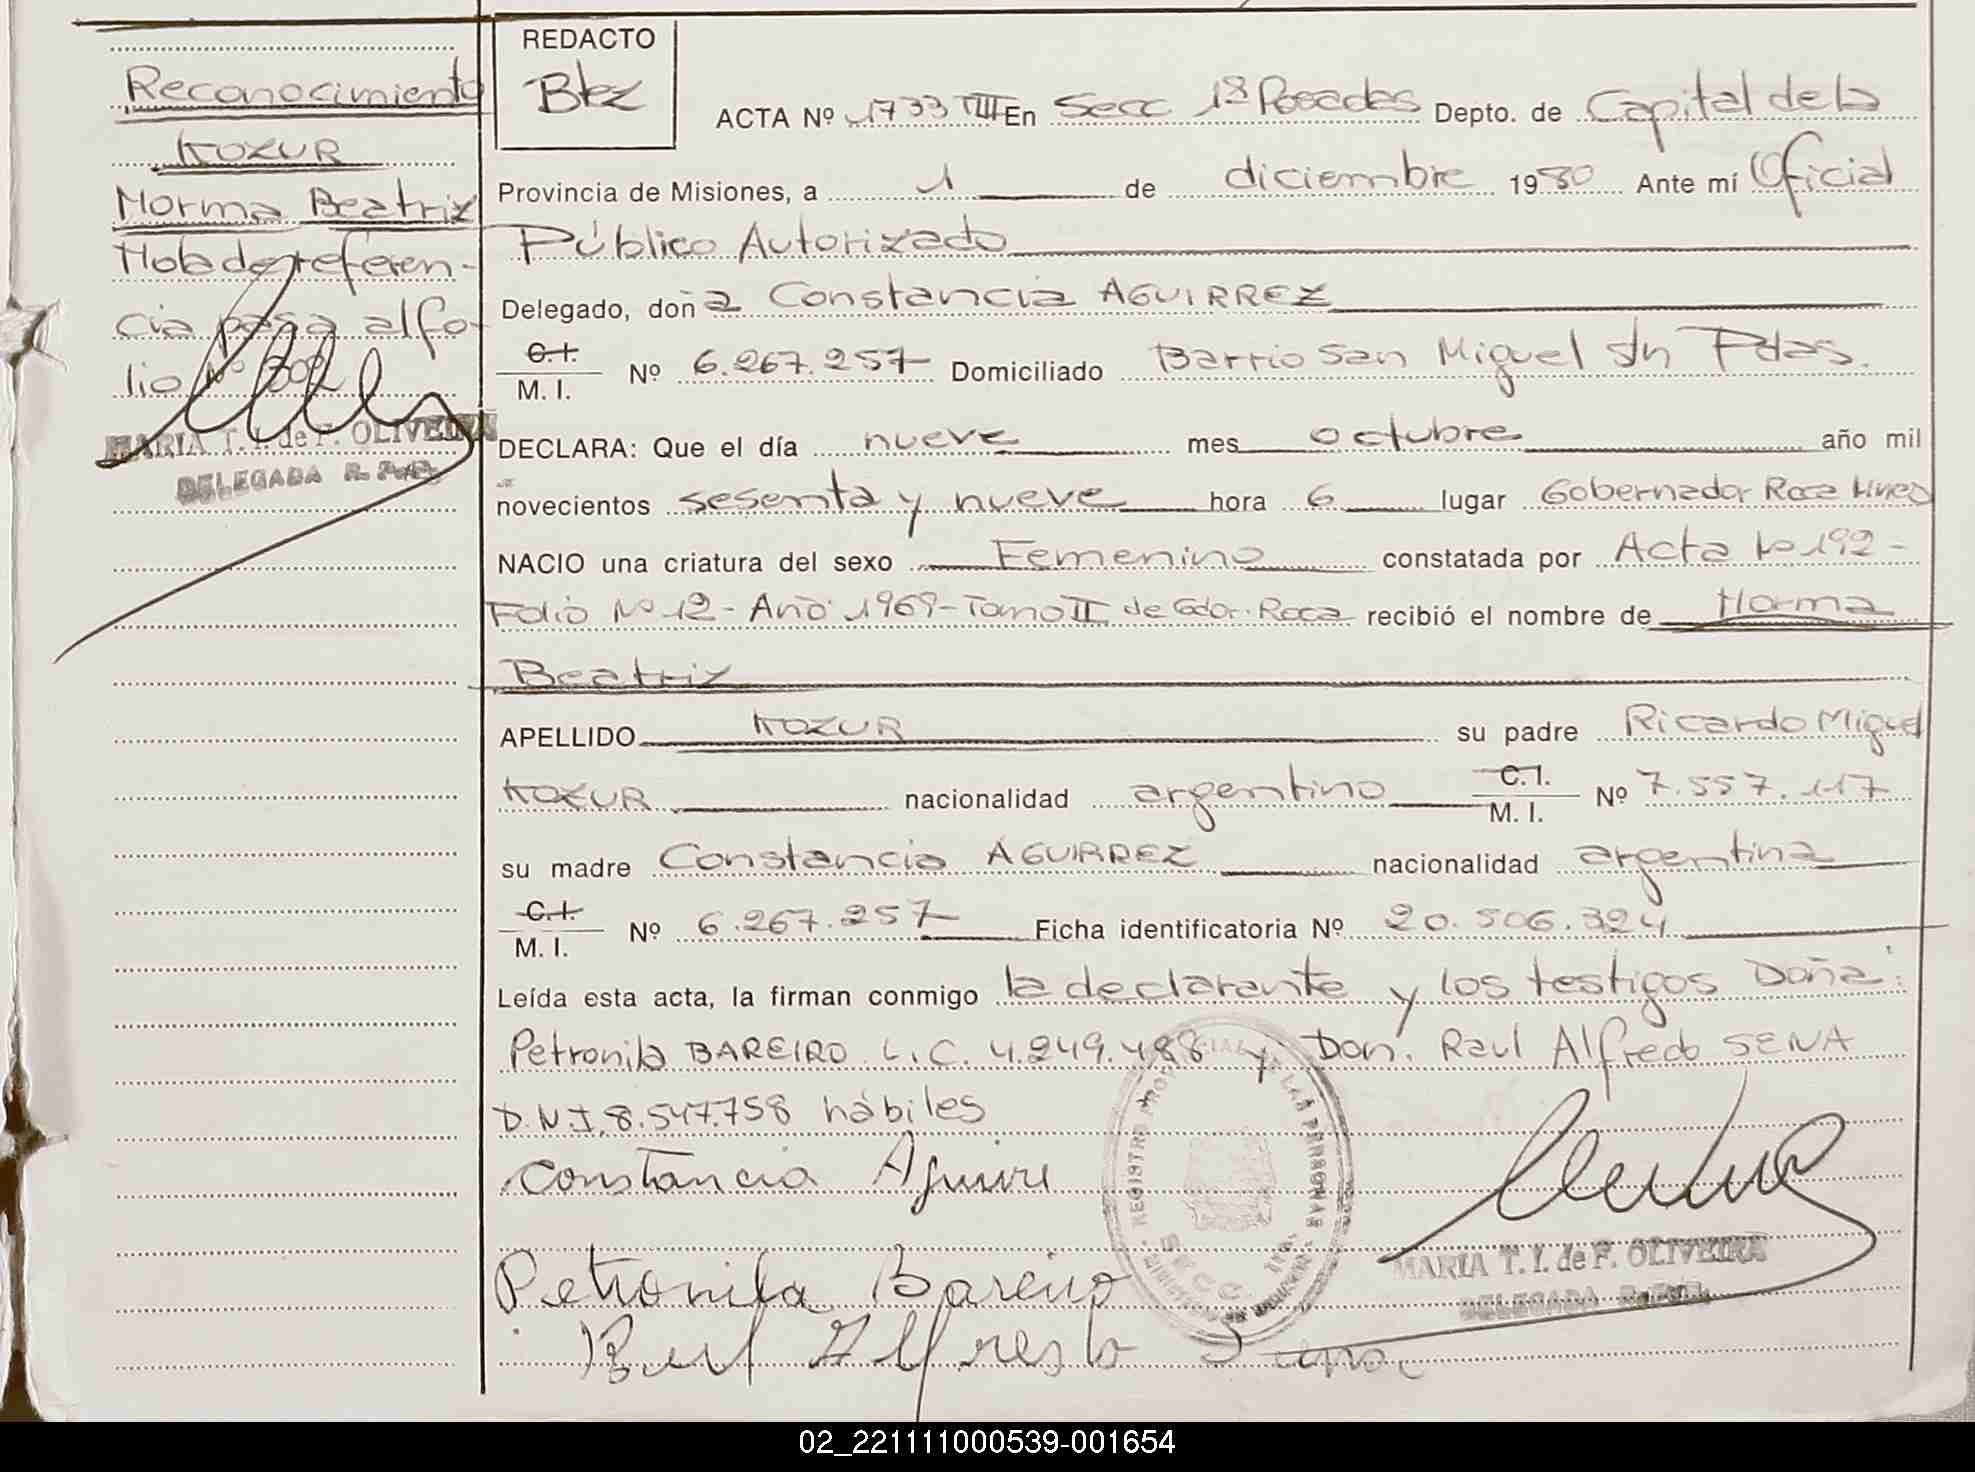 Reconocimiento
KOZUR
Norma Beatriz
Nota de referen-
cia pasa al fo-
lio Nº 302
MARIA T. I. de F. OLIVEIRA
DELEGADA R. P.
REDACTO
Btez
ACTA Nº 1733 TIII En Secc 1ª Posadas Depto. de Capital de la
Provincia de Misiones, a 1 de diciembre 1980 Ante mí Oficial
Público Autorizado
Delegado, doña Constancia AGUIRREZ
C.I. M. I. Nº 6.267.257 Domiciliado Barrio San Miguel s/n Pdas.
DECLARA: Que el día nueve mes octubre año mil
novecientos sesenta y nueve hora 6 lugar Gobernador Roca Mnes
NACIO una criatura del sexo Femenino constatada por Acta Nº 192-
Folio Nº 12 - Año 1969 - Tomo II de Gdor. Roca recibió el nombre de Norma
Beatriz
APELLIDO KOZUR su padre Ricardo Miguel
KOZUR nacionalidad argentino C.I. M. I. Nº 7.557.117
su madre Constancia AGUIRREZ nacionalidad argentina
C.I. M. I. Nº 6.267.257 Ficha identificatoria Nº 20.506.324
Leída esta acta, la firman conmigo la declarante y los testigos Doña:
Petronila BAREIRO L.C. 4.249.488 y Don. Raul Alfredo SENA
D.N.I. 8.547.758 hábiles
Constancia Aguirre
REGISTRO PROVINCIAL DE LAS PERSONAS
SECC. 1ra.
Petronila Bareiro
MARIA T. I. de F. OLIVEIRA
DELEGADA R.
Raul Alfredo Sena
02_221111000539-001654